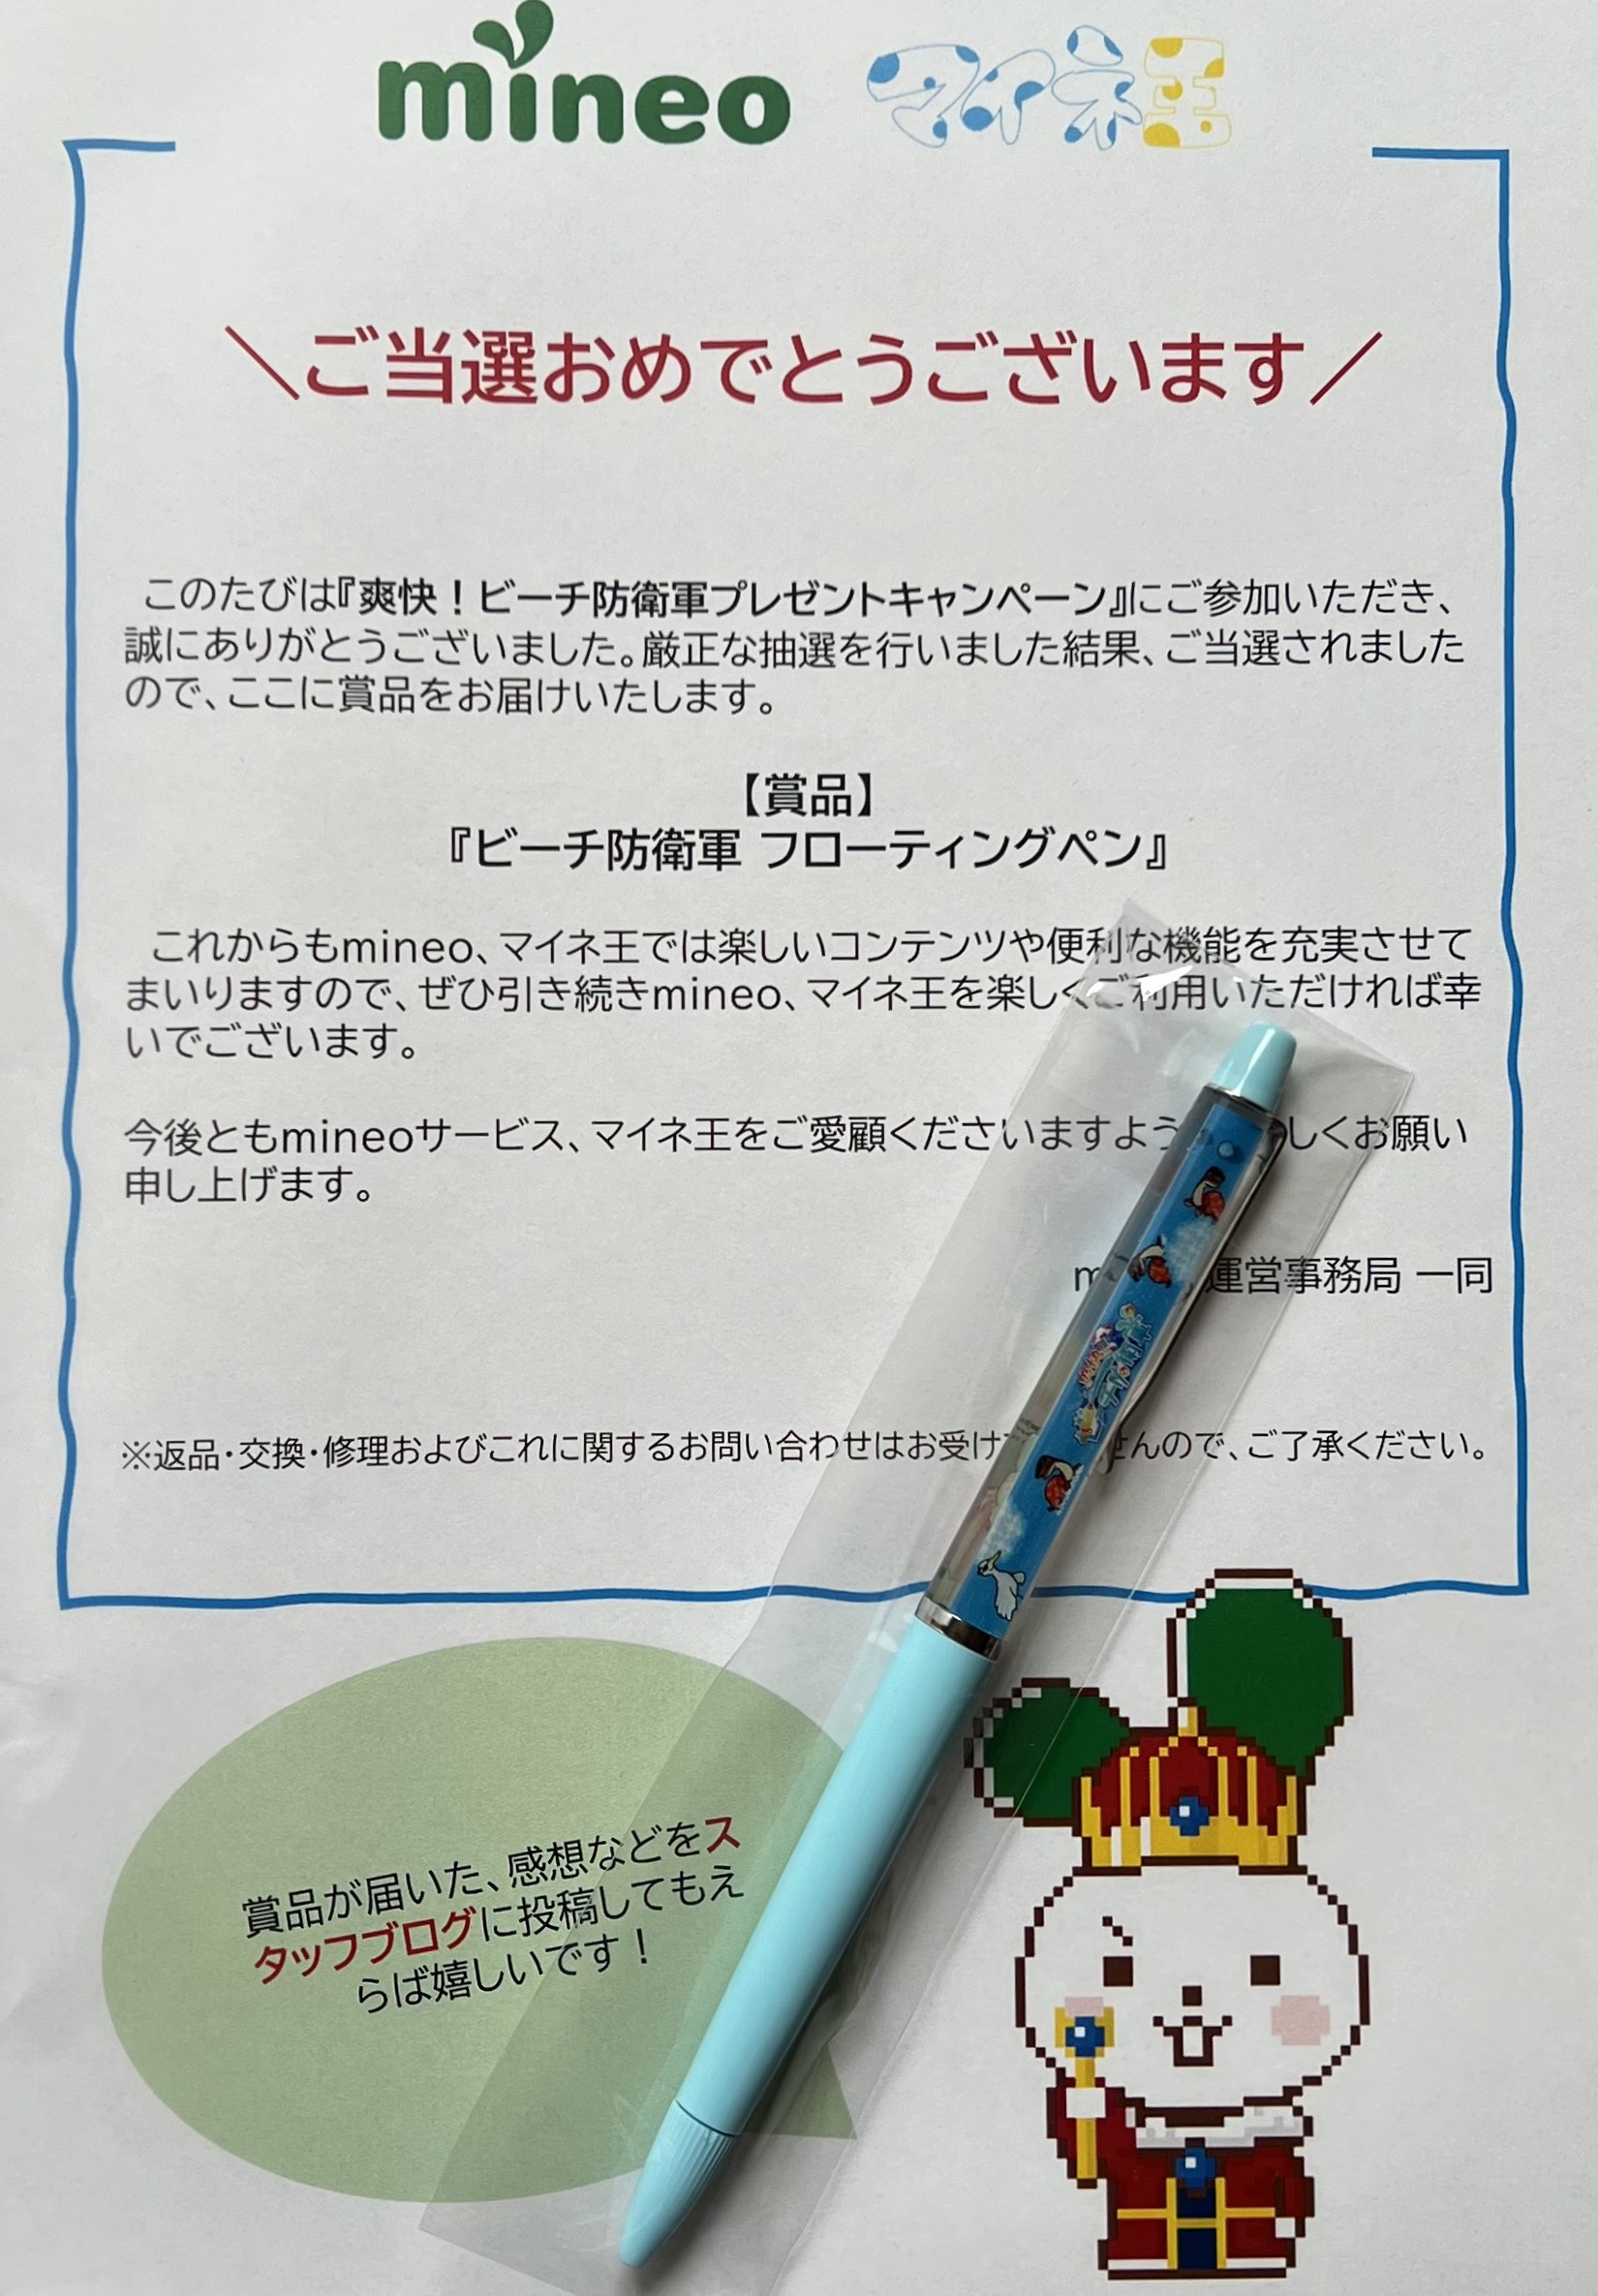 mineo マイネ王
＼ご当選おめでとうございます／
このたびは『爽快！ビーチ防衛軍プレゼントキャンペーン』にご参加いただき、
誠にありがとうございました。厳正な抽選を行いました結果、ご当選されました
ので、ここに賞品をお届けいたします。
【賞品】
『ビーチ防衛軍 フローティングペン』
これからもmineo、マイネ王では楽しいコンテンツや便利な機能を充実させて
まいりますので、ぜひ引き続きmineo、マイネ王を楽しくご利用いただければ幸
いでございます。
今後ともmineoサービス、マイネ王をご愛顧くださいますよう しくお願い
申し上げます。
m 運営事務局 一同
※返品・交換・修理およびこれに関するお問い合わせはお受け せんので、ご了承ください。
賞品が届いた、感想などをス
タッフブログに投稿してもえ
らば嬉しいです！